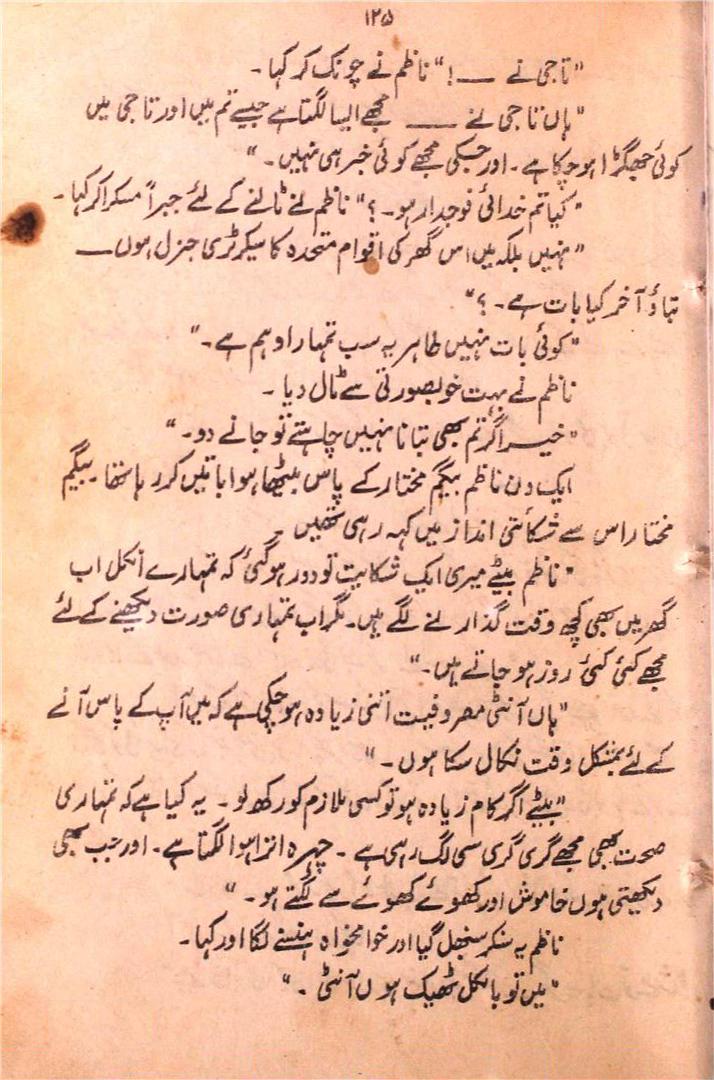 ۱۲۵
"تاجی نے ــــ !" ناظم نے چونک کر کہا۔
"ہاں تاجی نے ــــ مجھے ایسا لگتا ہے جیسے تم میں اور تاجی میں
کوئی جھگڑا ہو چکا ہے۔ اور جسکی مجھے کوئی خبر ہی نہیں۔"
"کیا تم خدائی فوجدار ہو۔؟" ناظم نے ٹالنے کے لئے جبراً مسکرا کر کہا۔
"نہیں بلکہ میں اس گھر کی اقوام متحدہ کا سیکرٹری جنرل ہوں ــــ
بتاؤ آخر کیا بات ہے۔؟"
"کوئی بات نہیں طاہر یہ سب تمہارا وہم ہے۔"
ناظم نے بہت خوبصورتی سے ٹال دیا۔
"خیر اگر تم بھی بتانا نہیں چاہتے تو جانے دو۔"
ایک دن ناظم بیگم مختار کے پاس بیٹھا ہوا باتیں کر رہا تھا۔ بیگم
مختار اس سے شکائتی انداز میں کہہ رہی تھیں۔
"ناظم بیٹے میری ایک شکایت تو دور ہو گئی کہ تمہارے انکل اب
گھر میں بھی کچھ وقت گذارنے لگے ہیں۔ مگر اب تمہاری صورت دیکھنے کے لئے
مجھے کئی کئی روز ہو جاتے ہیں۔"
"ہاں آنٹی مصروفیت اتنی زیادہ ہو چکی ہے کہ میں آپ کے پاس آنے
کے لئے بمشکل وقت نکال سکا ہوں۔"
"بیٹے اگر کام زیادہ ہو تو کسی ملازم کو رکھ لو۔ یہ کیا ہے کہ تمہاری
صحت بھی مجھے گری گری سی لگ رہی ہے۔ چہرہ اترا ہوا لگتا ہے۔ اور جب بھی
دیکھتی ہوں خاموش اور کھوئے کھوئے سے لگتے ہو۔"
ناظم یہ سنکر سنبھل گیا اور خوامخواہ ہنسنے لگا اور کہا۔
"میں تو بالکل ٹھیک ہوں آنٹی۔"